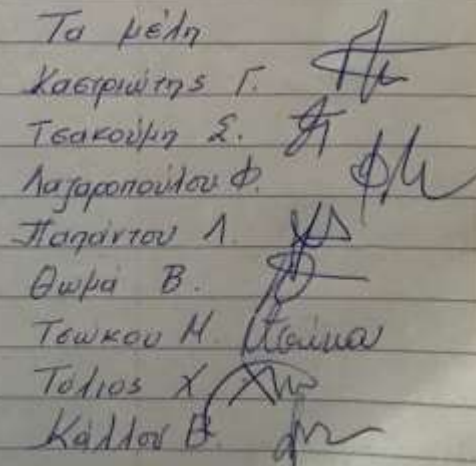 Τα μέλη
Καστριώτης Γ.
Τσακούμη Σ.
Λαζαροπούλου Φ.
Παπάντου Λ.
Θωμά Β.
Τσώκου Μ. Τσώκου
Τόλιος Χ.
Κάλλου Β.